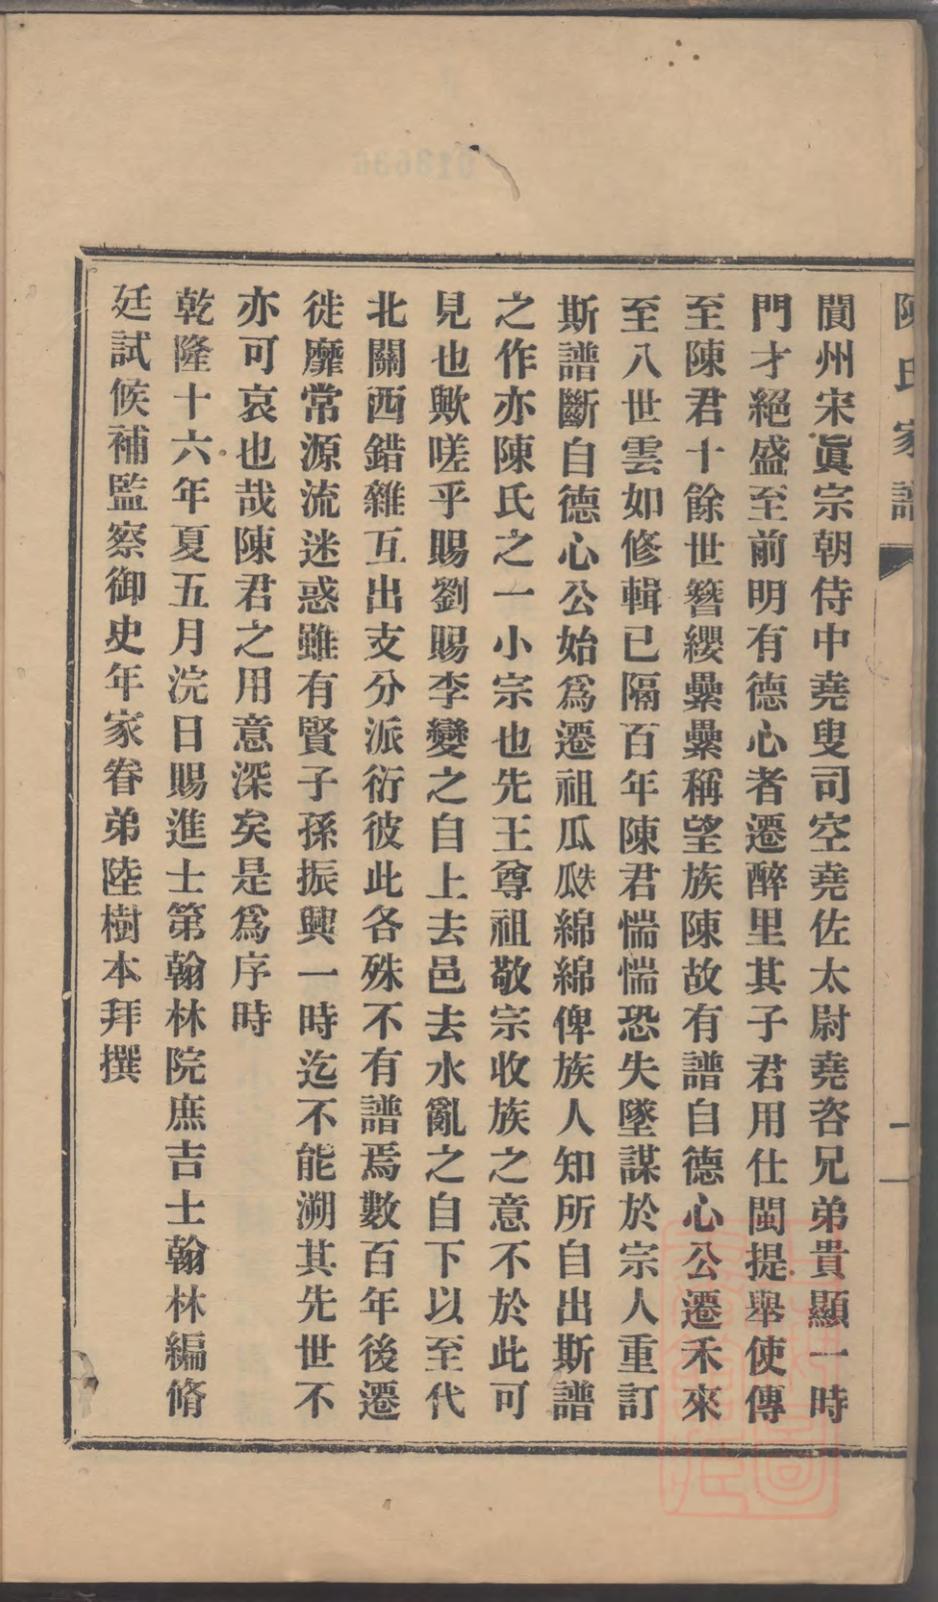 陳氏家譜
閬州宋眞宗朝侍中堯叟司空堯佐太尉堯咨兄弟貴顯一時
門才絕盛至前明有德心者遷醉里其子君用仕閩提舉使傳
至陳君十餘世簪纓纍纍稱望族陳故有譜自德心公遷禾來
至八世雲如修輯已隔百年陳君惴惴恐失墜謀於宗人重訂
斯譜斷自德心公始爲遷祖瓜瓞綿綿俾族人知所自出斯譜
之作亦陳氏之一小宗也先王尊祖敬宗收族之意不於此可
見也歟嗟乎賜劉賜李變之自上去邑去水亂之自下以至代
北關西錯雜互出支分派衍彼此各殊不有譜焉數百年後遷
徙靡常源流迷惑雖有賢子孫振興一時迄不能溯其先世不
亦可哀也哉陳君之用意深矣是爲序時
乾隆十六年夏五月浣日賜進士第翰林院庶吉士翰林編脩
廷試候補監察御史年家眷弟陸樹本拜撰